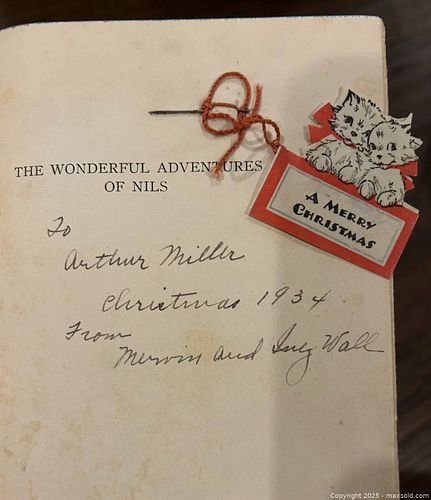 THE WONDERFUL ADVENTURES
OF NILS
A MERRY
CHRISTMAS
To
Arthur Miller
Christmas 1934
From
Mervin and Inez Wall
Copyright 2025 - maxsold.com